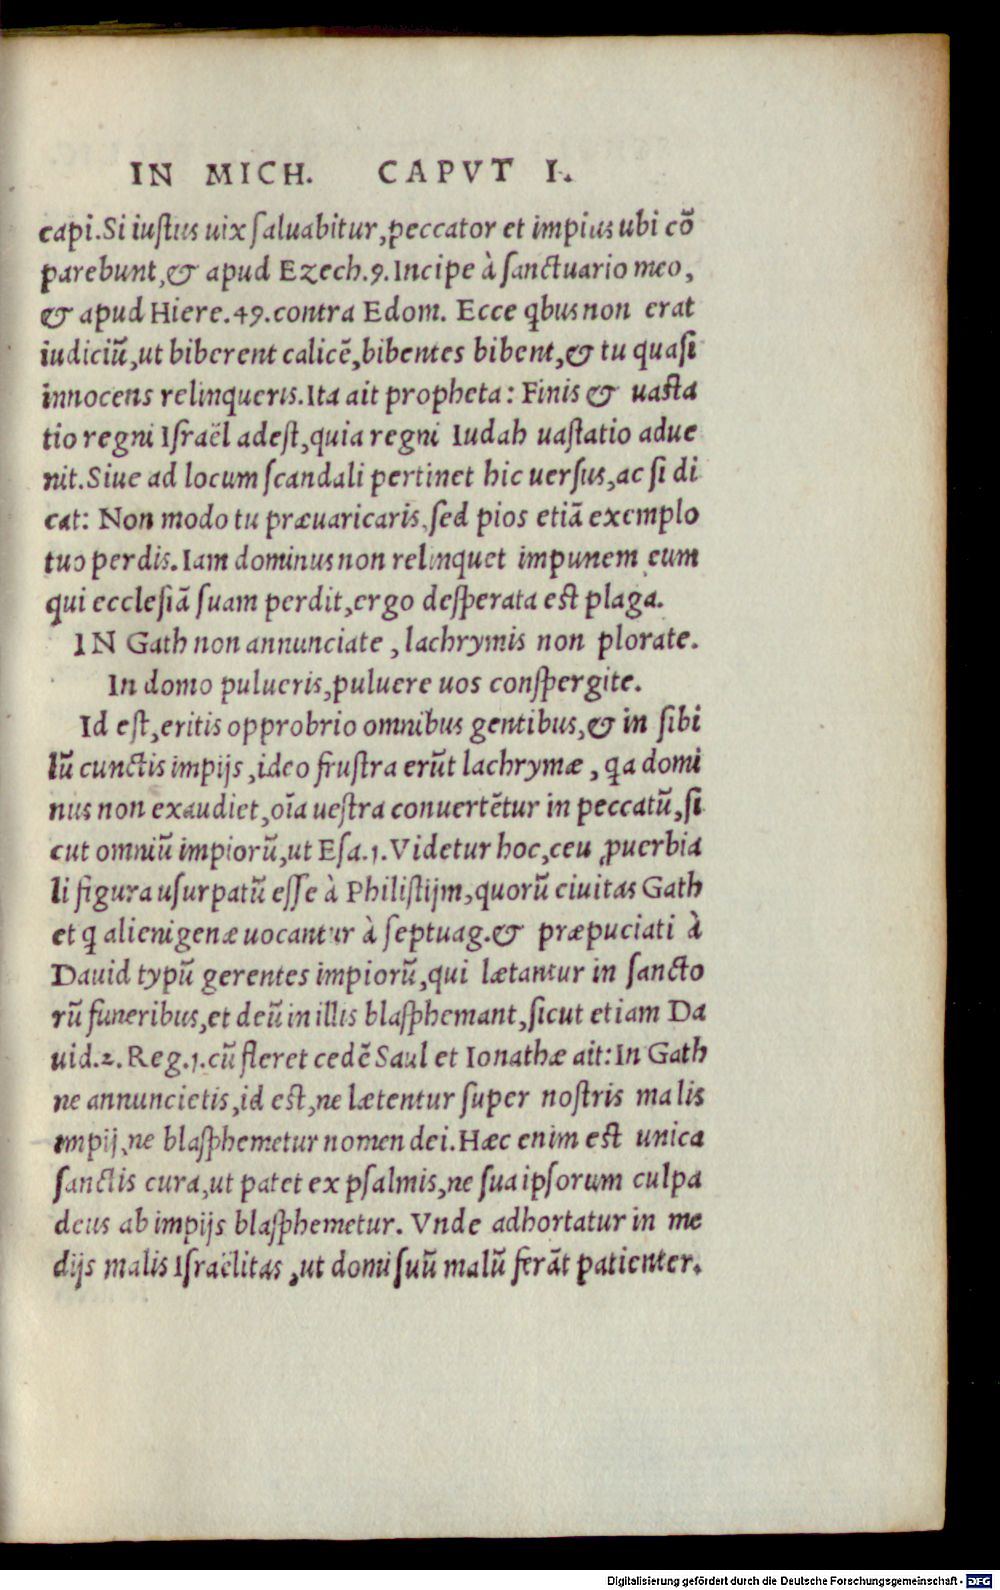 IN MICH. CAPVT I.
capi. Si iustus uix saluabitur, peccator et impius ubi cõ
parebunt, & apud Ezech. 9. Incipe à sanctuario meo,
& apud Hiere. 49. contra Edom. Ecce q̃bus non erat
iudiciũ, ut biberent calicẽ, bibentes bibent, & tu quasi
innocens relinqueris. Ita ait propheta: Finis & uasta
tio regni Israël adest, quia regni Iudah uastatio adue
nit. Siue ad locum scandali pertinet hic uersus, ac si di
cat: Non modo tu præuaricaris, sed pios etiã exemplo
tuo perdis. Iam dominus non relinquet impunem eum
qui ecclesiã suam perdit, ergo desperata est plaga.
IN Gath non annunciate, lachrymis non plorate.
In domo pulueris, puluere uos conspergite.
Id est, eritis opprobrio omnibus gentibus, & in sibi
lũ cunctis impijs, ideo frustra erũt lachrymæ, q̃a domi
nus non exaudiet, oĩa uestra conuertẽtur in peccatũ, si
cut omniũ impiorũ, ut Esa. 1. Videtur hoc, ceu ꝓuerbia
li figura usurpatũ esse à Philistijm, quorũ ciuitas Gath
et q̃ alienigenæ uocantur à septuag. & præpuciati à
Dauid typũ gerentes impiorũ, qui lætantur in sancto
rũ funeribus, et deũ in illis blasphemant, sicut etiam Da
uid. 2. Reg. 1. cũ fleret cedẽ Saul et Ionathæ ait: In Gath
ne annuncietis, id est, ne lætentur super nostris malis
impij, ne blasphemetur nomen dei. Hæc enim est unica
sanctis cura, ut patet ex psalmis, ne sua ipsorum culpa
deus ab impijs blasphemetur. Vnde adhortatur in me
dijs malis Israëlitas, ut domi suũ malũ ferãt patienter.
Digitalisierung gefördert durch die Deutsche Forschungsgemeinschaft - DFG